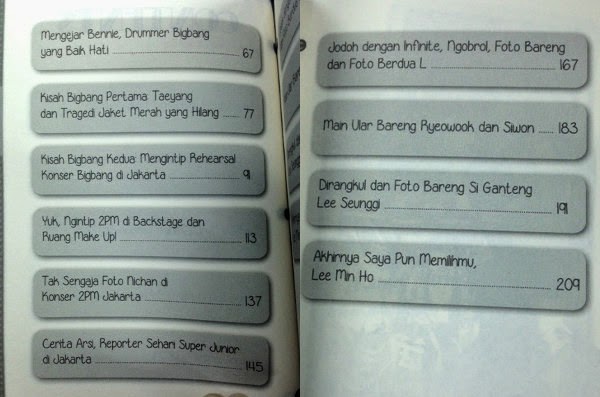 Mengejar Bennie, Drummer Bigbang
yang Baik Hati ........ 67
Kisah Bigbang Pertama: Taeyang
dan Tragedi Jaket Merah yang Hilang ...... 77
Kisah Bigbang Kedua: Mengintip Rehearsal
Konser Bigbang di Jakarta ........ 91
Yuk, Ngintip 2PM di Backstage dan
Ruang Make Up! ........ 113
Tak Sengaja Foto Nichan di
Konser 2PM Jakarta ........ 137
Cerita Arsi, Reporter Sehari Super Junior
di Jakarta ........ 145
Jodoh dengan Infinite, Ngobrol, Foto Bareng
dan Foto Berdua L ........ 167
Main Ular Bareng Ryeowook dan Siwon ...... 183
Dirangkul dan Foto Bareng Si Ganteng
Lee Seunggi ........ 191
Akhirnya Saya Pun Memilihmu,
Lee Min Ho ........ 209